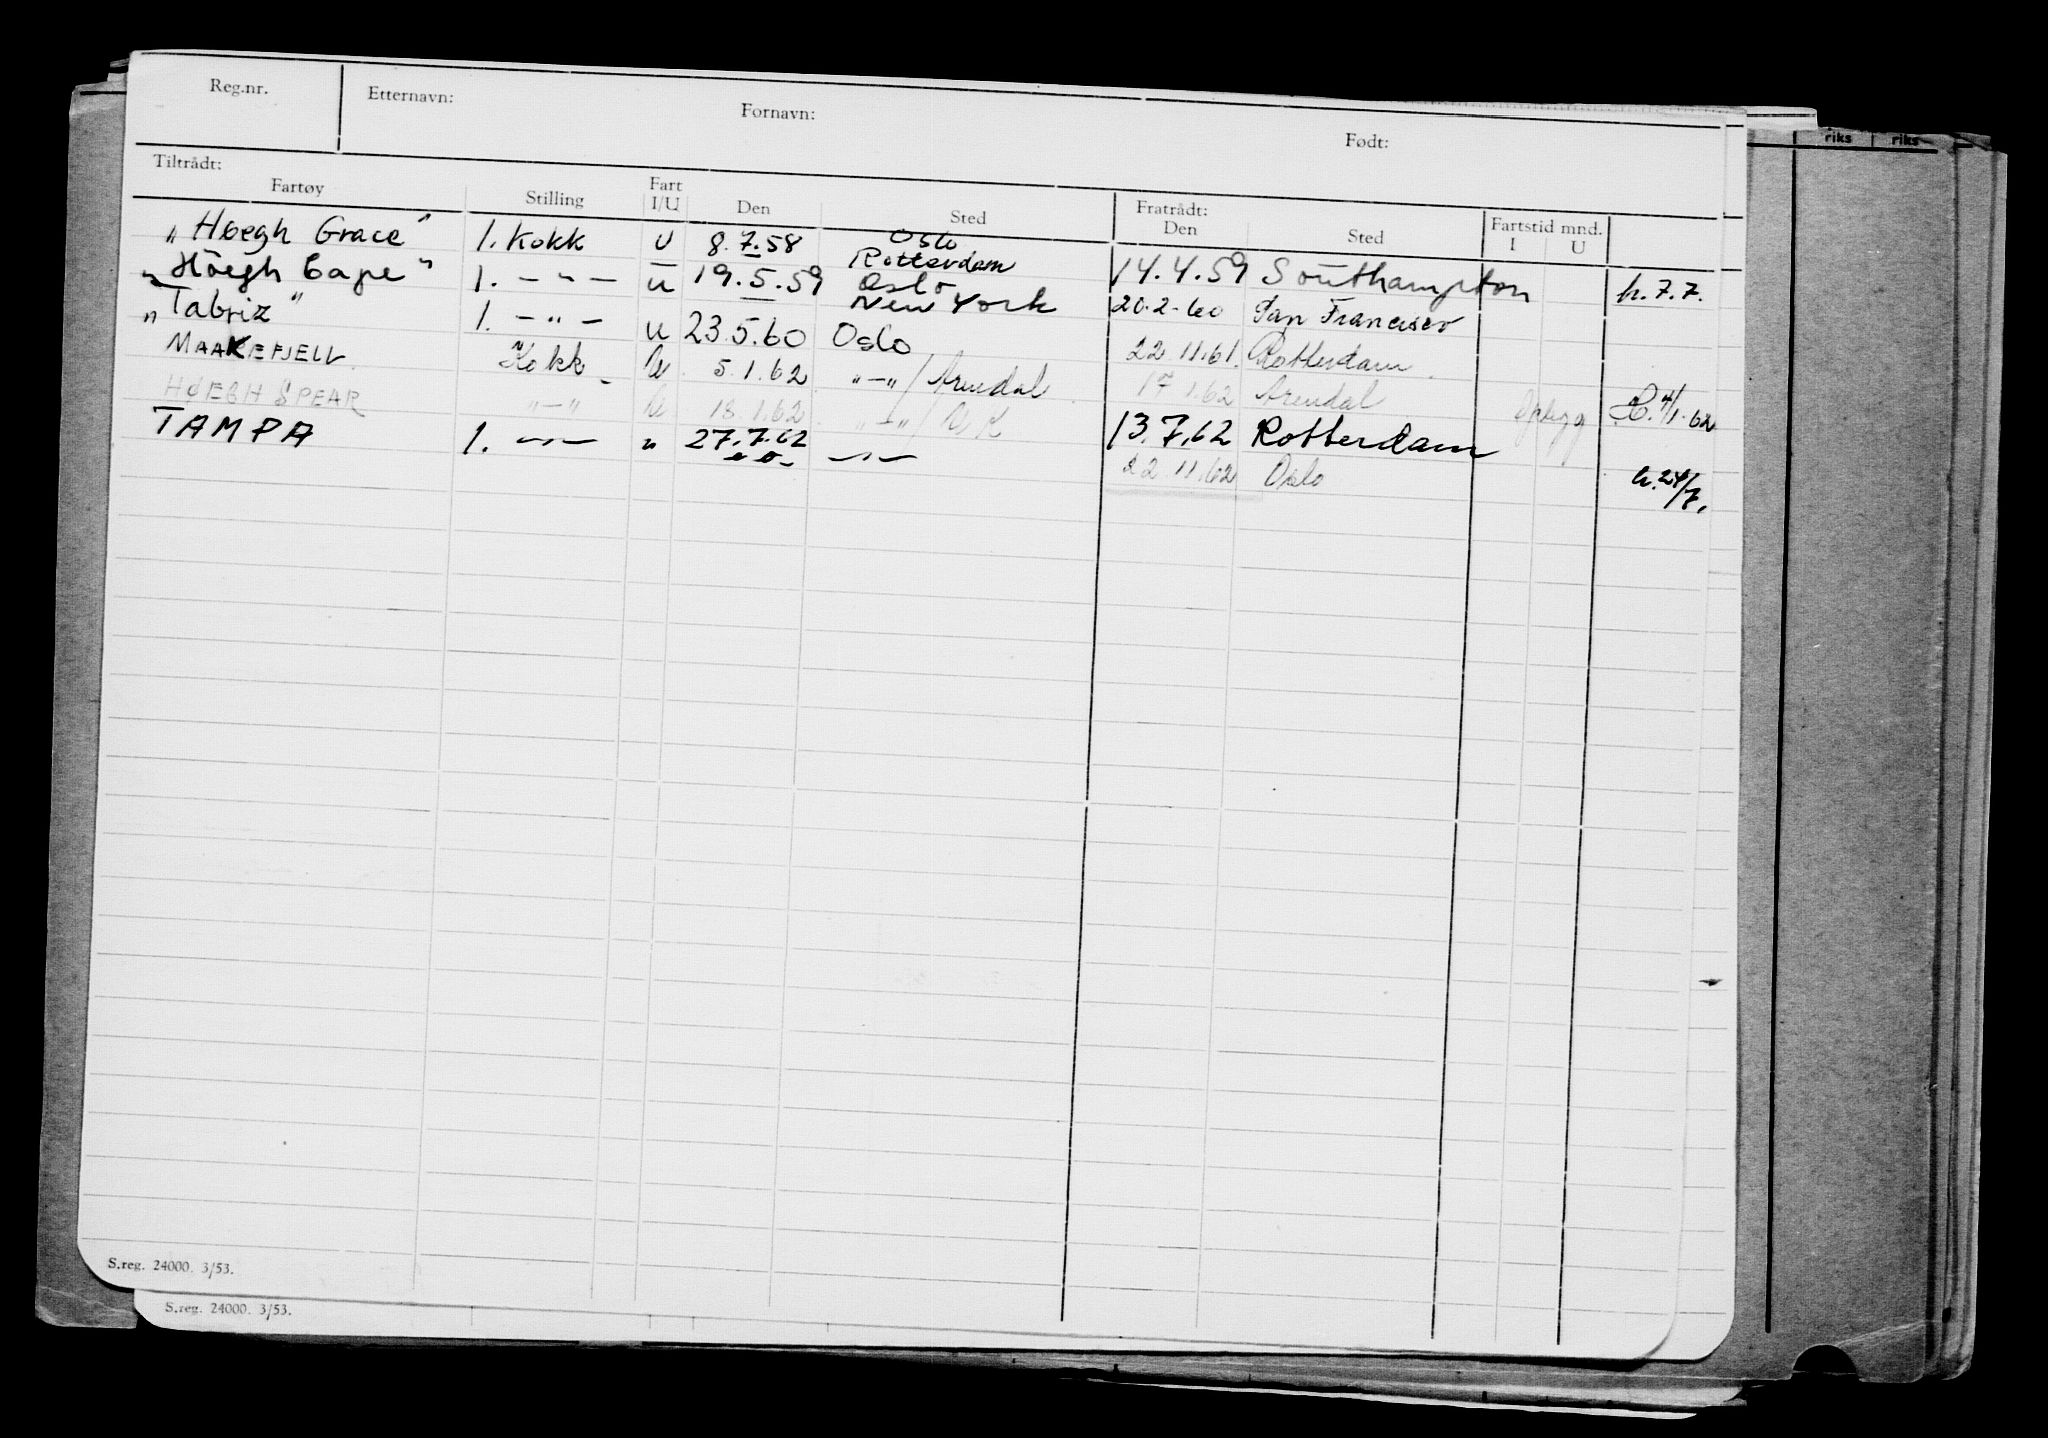 Reg.nr. Etternavn: Fornavn: Født:
Tiltrådt: Fratrådt:
Fartøy Stilling Fart I/U Den Sted Den Sted Fartstid mnd. I U
riks riks
„Høegh Grace" 1. Kokk U 8.7.58 Oslo Rotterdam 14.4.59 Southampton h.7.7.
„Höegh Cape" 1. -"- u 19.5.59 Oslo New York 20.2.60 San Francisco
„Tabriz" 1. -"- u 23.5.60 Oslo 22.11.61. Rotterdam.
MAAKEFJELL. Kokk U. 5.1.62 "-"/Arendal 17.1.62 Arendal H. 4/1-62
HØEGH SPEAR "-" U. 18.1.62. "-"/ 13.7.62 Rotterdam
TAMPA 1. -"- " 27.7.62 -"- 22.11.62 Oslo h.24/7.
S.reg. 24000. 3/53.
S.reg. 24000. 3/53.